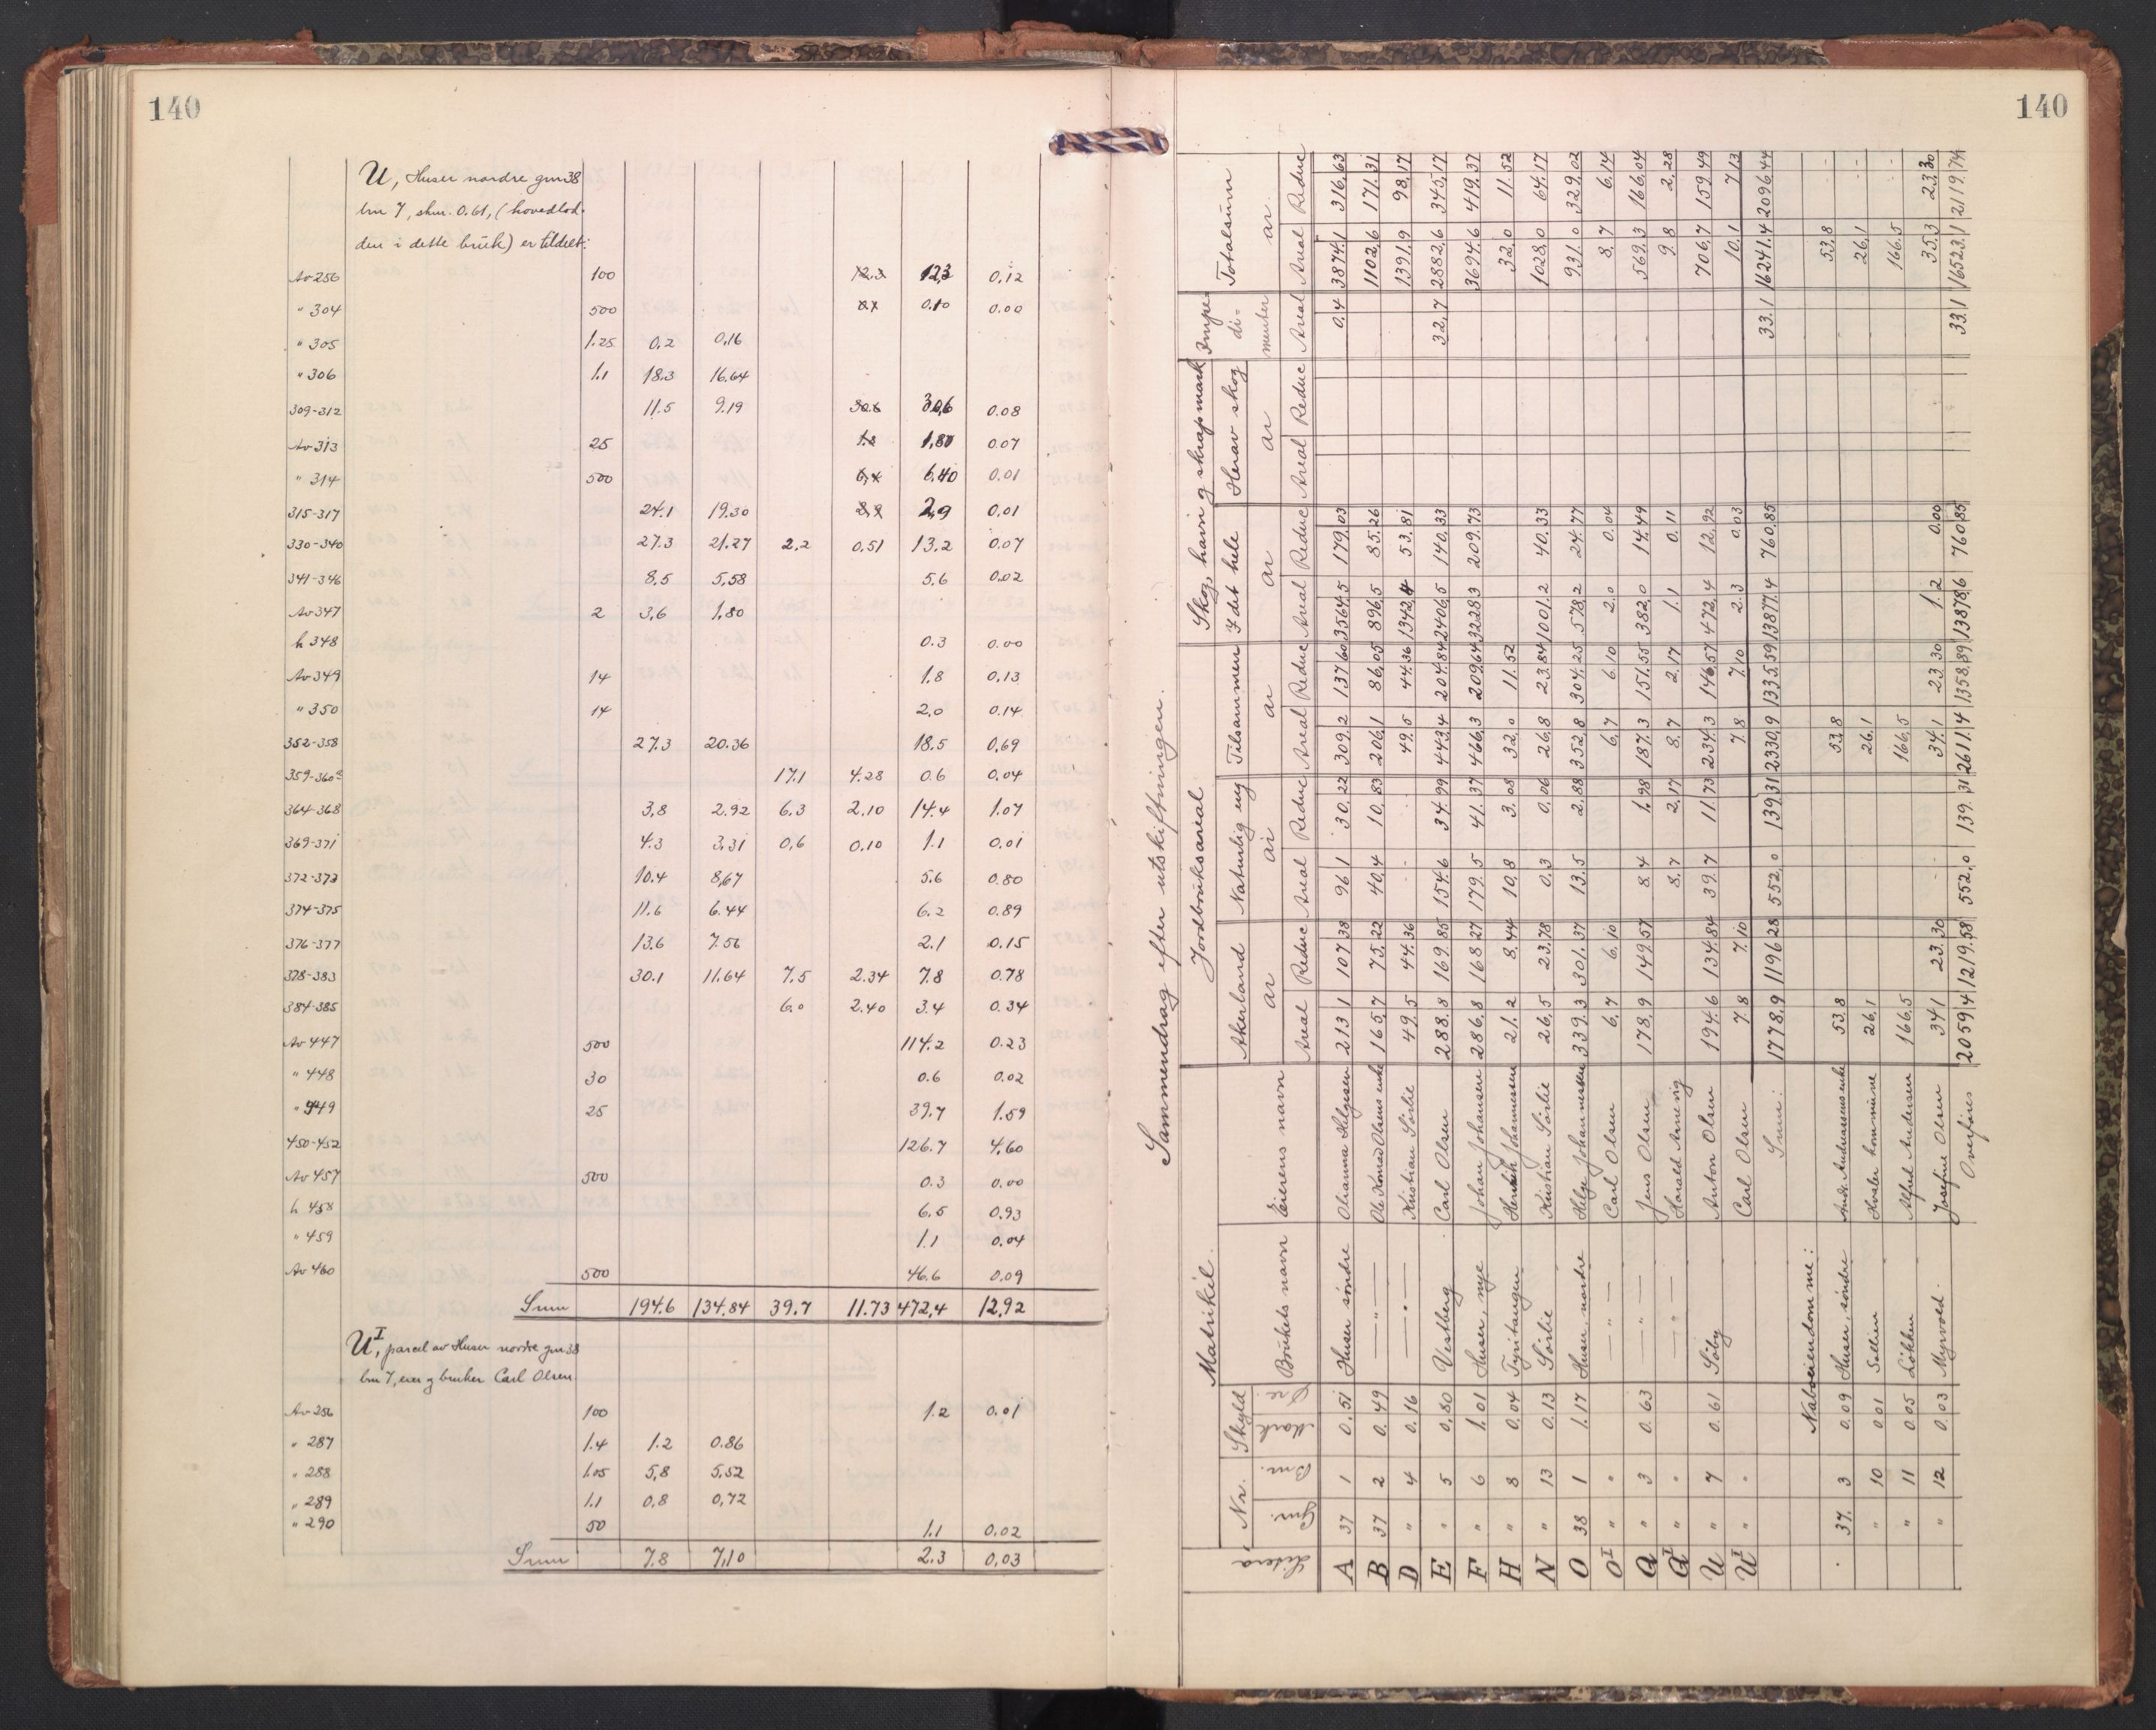 140
U, Huser nordre gnr 38
bnr 7, skm. 0.61, (hovedlod-
den i dette bruk) er tildelt:
Av 256 100 12.3 12,3 0,12
" 304 500 0.10 0.00
" 305 1.25 0.2 0,16
" 306 1.1 18.3 16.64
309-312 11.5 9.19 30.6 30,6 0.08
Av 313 25 1.8 1,80 0.07
" 314 500 6,4 6,40 0.01
315-317 24.1 19.30 2,9 2,9 0,01
330-340 27.3 21.27 2,2 0,51 13.2 0.07
341-346 8,5 5,58 5.6 0,02
Av 347 2 3,6 1,80
h 348 0.3 0.00
Av 349 14 1.8 0,13
" 350 14 2,0 0.14
352-358 27.3 20.36 18.5 0,69
359-360 17.1 4.28 0.6 0,04
364-368 3,8 2.92 6,3 2,10 14.4 1.07
369-371 4.3 3,31 0,6 0.10 1.1 0.01
372-373 10.4 8,67 5.6 0.80
374-375 11.6 6.44 6.2 0.89
376-377 13.6 7.56 2.1 0.15
378-383 30.1 11,64 7.5 2.34 7.8 0.78
384-385 6.0 2.40 3.4 0.34
Av 447 500 114.2 0.23
" 448 30 0.6 0.02
" 449 25 39.7 1.59
450-452 126.7 4,60
Av 457 500 0.3 0.00
h 458 6.5 0.93
" 459 1.1 0.04
Av 460 500 46.6 0.09
Sum 194.6 134.84 39.7 11.73 472,4 12,92
U I, parcel av Huser nordre gnr 38
bnr 7, eier og bruker Carl Olsen
Av 286 100 1.2 0.01
" 287 1.4 1.2 0.86
" 288 1.05 5,8 5,52
" 289 1.1 0.8 0,72
" 290 50 1.1 0.02
Sum 7.8 7,10 2.3 0,03
140
Sammendrag efter utskiftningen.
Matrikel. Jordbruksareal Skog, havn og skrapmark Impe- Totalsum
Litera Nr. Skyld Brukets navn Eierens navn Akerland Naturlig eng Tilsammen I det hele Herav skog di- menter
Gnr. Bnr. Mark Øre ar ar ar ar ar ar.
Areal Reduc Areal Reduc Areal Reduc Areal Reduc Areal Reduc Areal Areal Reduc
A 37 1 0.51 Huser søndre Olianna Helgesen 213.1 107.38 96.1 30,22 309.2 137.60 3564.5 179.03 0.4 3874.1 316.63
B 37 2 0.49 — " — Ole Konrad Olsens enke 165,7 75,22 40,4 10,83 206,1 86,05 896,5 85.26 1102,6 171.31
D " 4 0.16 — " — Kristian Sørlie 49.5 44.36 49.5 44.36 1342,4 53,81 1391.9 98,17
E " 5 0,80 Vestberg Carl Olsen 288.8 169.85 154.6 34.99 443,4 204.84 2406,5 140,33 32,7 2882,6 345,17
F " 6 1.01 Huser, nye Johan Johansen 286,8 168.27 179.5 41.37 466,3 209.64 3228.3 209.73 3694.6 419.37
H " 8 0.04 Tyritangen Henrik Johannessen 21.2 8,44 10,8 3.08 32,0 11.52 32.0 11.52
N " 13 0.13 Sørlie Kristian Sørlie 26,5 23,78 0,3 0,06 26,8 23.84 1001.2 40,33 1028,0 64.17
O 38 1 1.17 Huser, nordre Helge Johannessen 339.3 301,37 13.5 2,88 352,8 304.25 578,2 24.77 931.0 329,02
O I " " — " — Carl Olsen 6,7 6,10 6,7 6,10 2,0 0,04 8,7 6,14
Q " 3 0.63 — " — Jens Olsen 178,9 149,57 8,4 1,98 187,3 151.55 382,0 14.49 569.3 166,04
Q I " " — " — Harald Arnevig 8,7 2,17 8,7 2,17 1.1 0.11 9.8 2,28
U " 7 0.61 Søby Anton Olsen 194.6 134.84 39.7 11.73 234.3 146,57 472,4 12,92 706,7 159.49
U I " " Carl Olsen 7.8 7.10 7.8 7.10 2.3 0,03 10.1 7.13
Sum: 1778,9 1196.28 552,0 139.31 2330,9 1335,59 13877.4 760,85 33.1 16241.4 2096.44
Naboeiendommene:
37. 3 0.09 Huser, søndre 53,8 53,8 53,8
" 10 0.01 Sollien Hvaler kommune 26,1 26,1 26,1
" 11 0.05 Løkken Alfred Andersen 166,5 166,5 166.5
" 12 0.03 Myrvold. Josefine Olsen 34.1 23.30 34.1 23.30 1.2 0.00 35.3 23.30
Overføres 2059,4 1219.58 552.0 139.31 2611.4 1358,89 13878,6 760,85 33.1 16523.1 2119,74